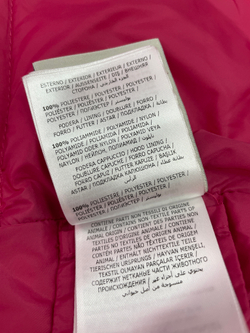 ESTERNO / EXTERIEUR / EXTERNO /
EXTERIOR / AUSSENSEITE / DIŞ / ВНЕШНЯЯ
СТОРОНА /
100% POLIESTERE / POLYESTER /
POLIÉSTER / POLYESTER / POLYESTER /
POLYESTER / ПОЛИЭСТЕР /
FODERA / LINING / DOUBLURE / FORRO /
FORRO / FUTTER / ASTAR / ПОДКЛАДКА /
100% POLIAMMIDE / POLYAMIDE / NYLON /
POLYAMID ODER NYLON / POLYAMID VEYA
NAYLON / НЕЙЛОН, ПОЛИАМИД /
FODERA CAPPUCCIO / HOOD LINING /
DOUBLURE CAPUCHE / FORRO CAPUCHA /
FORRO CAPUZ / FUTTER KAPUZE / BAŞLIK
ASTARI / ПОДКЛАДКА КАПЮШОНА /
100% POLIESTERE / POLYESTER /
POLIÉSTER / POLYESTER /
POLYESTER / ПОЛИЭСТЕР /
CONTIENE PARTI NON TESSILI DI ORIGINE
ANIMALE / CONTAINS NON TEXTILE PARTS OF
ANIMAL ORIGIN / CONTIENT DES PARTIES NON
TEXTILES D'ORIGINE ANIMALE / CONTIENE
PARTES NO TEXTILES DE ORIGEN
ANIMAL / CONTÉM PARTES NÃO TÊXTEIS DE
ORIGEM ANIMAL / ENTHÄLT NICHTTEXTILE TEILE
TIERISCHEN URSPRUNGS / HAYVAN MENŞELİ,
TEKSTİL OLMAYAN PARÇALAR İÇERİR /
СОДЕРЖИТ НЕТКАНЫЕ ЧАСТИ ЖИВОТНОГО
ПРОИСХОЖДЕНИЯ /